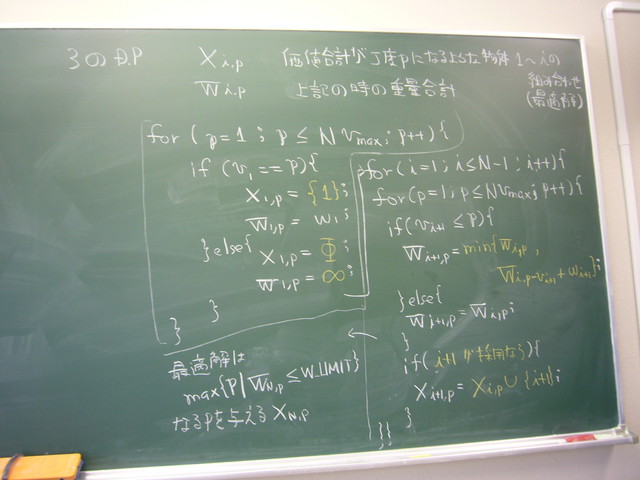 3のD.P
X i,p 価値合計が丁度pになるような物体1~iの
組み合わせ
(最適解)
W̅ i,p 上記の時の重量合計
for ( p=1 ; p ≤ N Vmax ; p++) {
if (v1 == p) {
X1,p = {1};
W̅1,p = w1;
} else { X1,p = Φ;
W̅1,p = ∞;
}
}
for (i=1; i≤N-1; i++) {
for (p=1; p≤NVmax; p++) {
if (vi+1 ≤ p) {
W̅i+1,p = min{W̅i,p ,
W̅i,p-vi+1 + wi+1};
} else {
W̅i+1,p = W̅i,p;
}
if( i+1が採用なら) {
Xi+1,p = Xi,p ∪ {i+1};
}
}}
最適解は
max{P | W̅N,p ≤ W_LIMIT}
なるPを与える XN,p